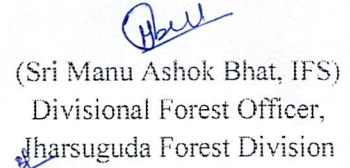 (Sri Manu Ashok Bhat, IFS)
Divisional Forest Officer,
Jharsuguda Forest Division